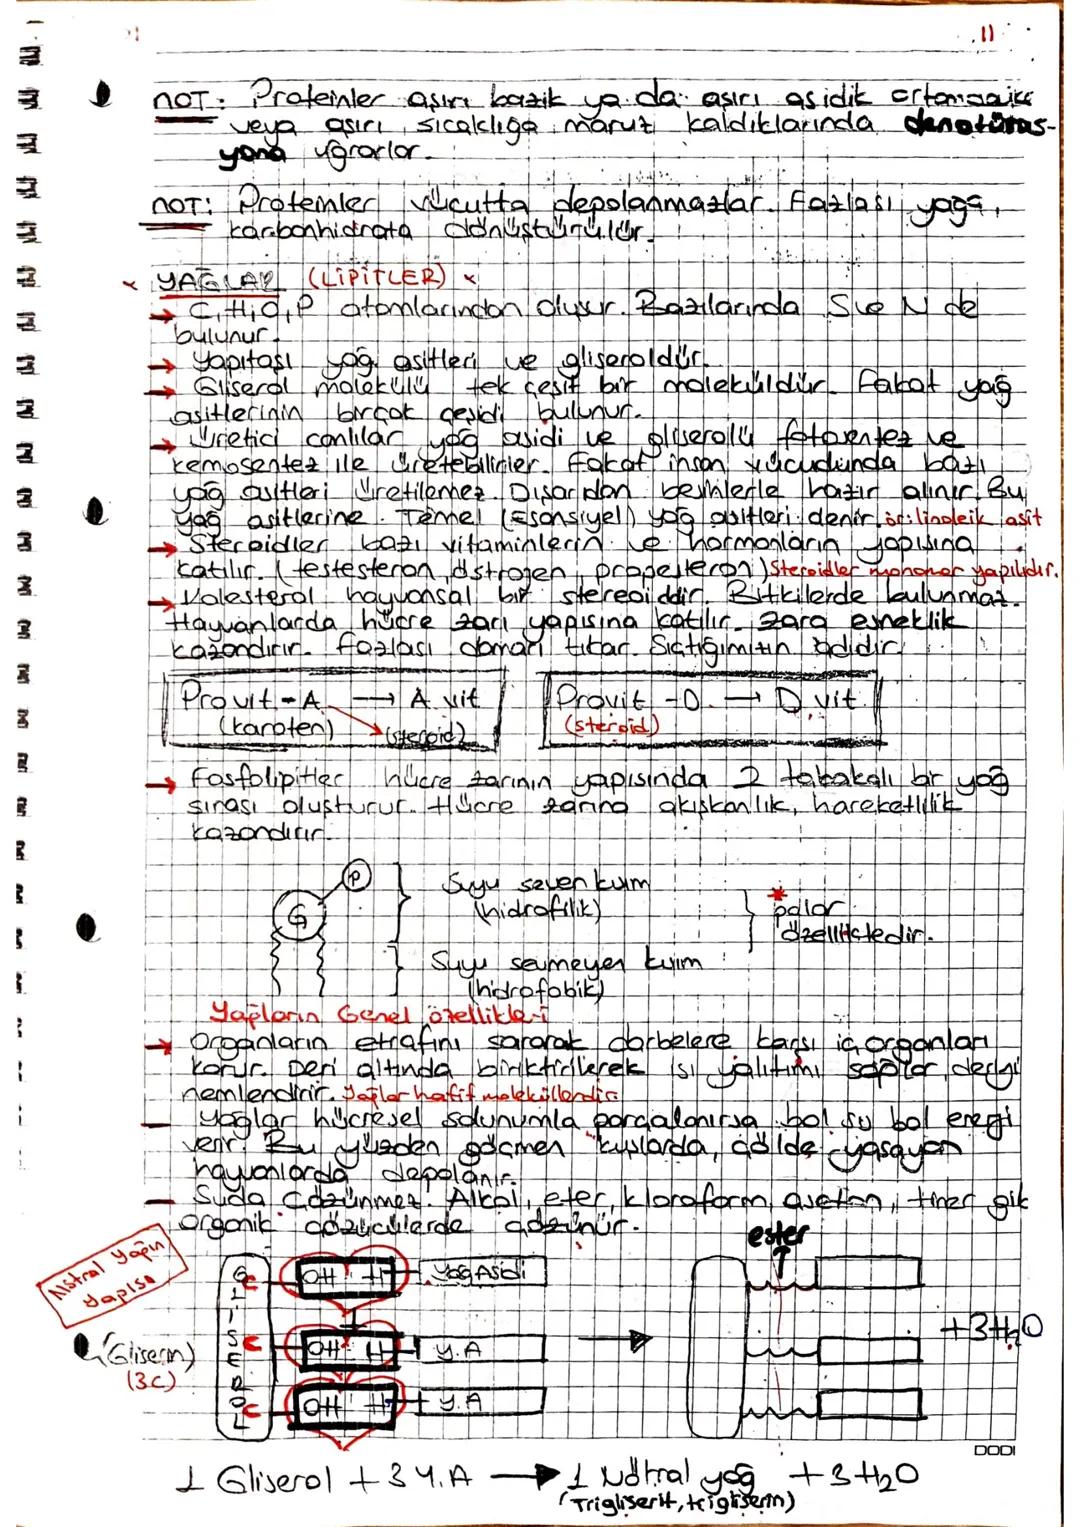 11
NOT: Proteinler aşırı bazik ya da aşırı asidik
veya aşırı sıcaklığa maruz kaldıklarında denatüras-
yona uğrarlar.
NOT: Proteinler vücutta depolanmazlar. Fazlası yağa,
karbonhidrata dönüştürülür.
x YAĞLAR (LİPİTLER) x
→ C, H, O, P atomlarından oluşur. Bazılarında S ve N de
bulunur.
→ Yapıtaşı yağ asitleri ve gliseroldür.
→ Gliserol molekülü tek çeşit bir moleküldür. Fakat yağ
asitlerinin birçok çeşidi bulunur.
→ Üretici canlılar yağ asidi ve gliserolü fotosentez ve
kemosentez ile üretebilirler. Fakat insan vücudunda bazı
yağ asitleri üretilemez. Dışarıdan besinlerle hazır alınır. Bu
yağ asitlerine Temel (Esansiyel) yağ asitleri denir. ör: linoleik asit
→ Steroidler bazı vitaminlerin ve hormonların yapısına
katılır. (testesteron, östrogen, progesteron) Steroidler monomer yapılıdır.
→ Kolesterol hayvansal bir stereoiddir. Bitkilerde bulunmaz.
Hayvanlarda hücre zarı yapısına katılır. Zara esneklik
kazandırır. Fazlası damarı tıkar.
Provit-A → A vit
(karoten) (steroid)
Provit-D. → D vit
(steroid)
→ Fosfolipitler hücre zarının yapısında 2 tabakalı bir yağ
sırası oluşturur. Hücre zarına akışkanlık, hareketlilik
kazandırır.
P
G
Suyu seven kısım
(hidrofilik)
* polar
özelliktedir.
Suyu sevmeyen kısım
(hidrofobik)
Yağların Genel özellikleri
→ Organların etrafını sararak darbelere karşı iç organları
korur. Deri altında biriktirilerek ısı yalıtımı sağlar, deriyi
nemlendirir. Yağlar hafif moleküllerdir.
— Yağlar hücresel solunumla parçalanırsa bol su bol enerji
verir. Bu yüzden göçmen kuşlarda, çölde yaşayan
hayvanlarda depolanır.
— Suda çözünmez. Alkol, eter, kloroform, aseton, tiner gibi
organik çözücülerde çözünür.
ester
Nötral Yağın
Yapısı
GLİSEROL
C OH H Yağ Asidi
C OH H Y.A
C OH H Y.A
(Gliserin)
(3C)
+3H₂O
DODI
1 Gliserol + 3 Y.A → 1 Nötral yağ + 3 H₂O
(Trigliserit, trigliserin)